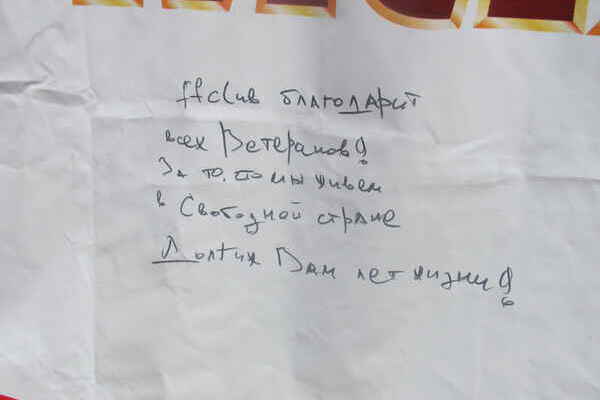 ffclub благодарит
всех Ветеранов!
За то, что мы живем
в Свободной стране
Долгих Вам лет жизни!